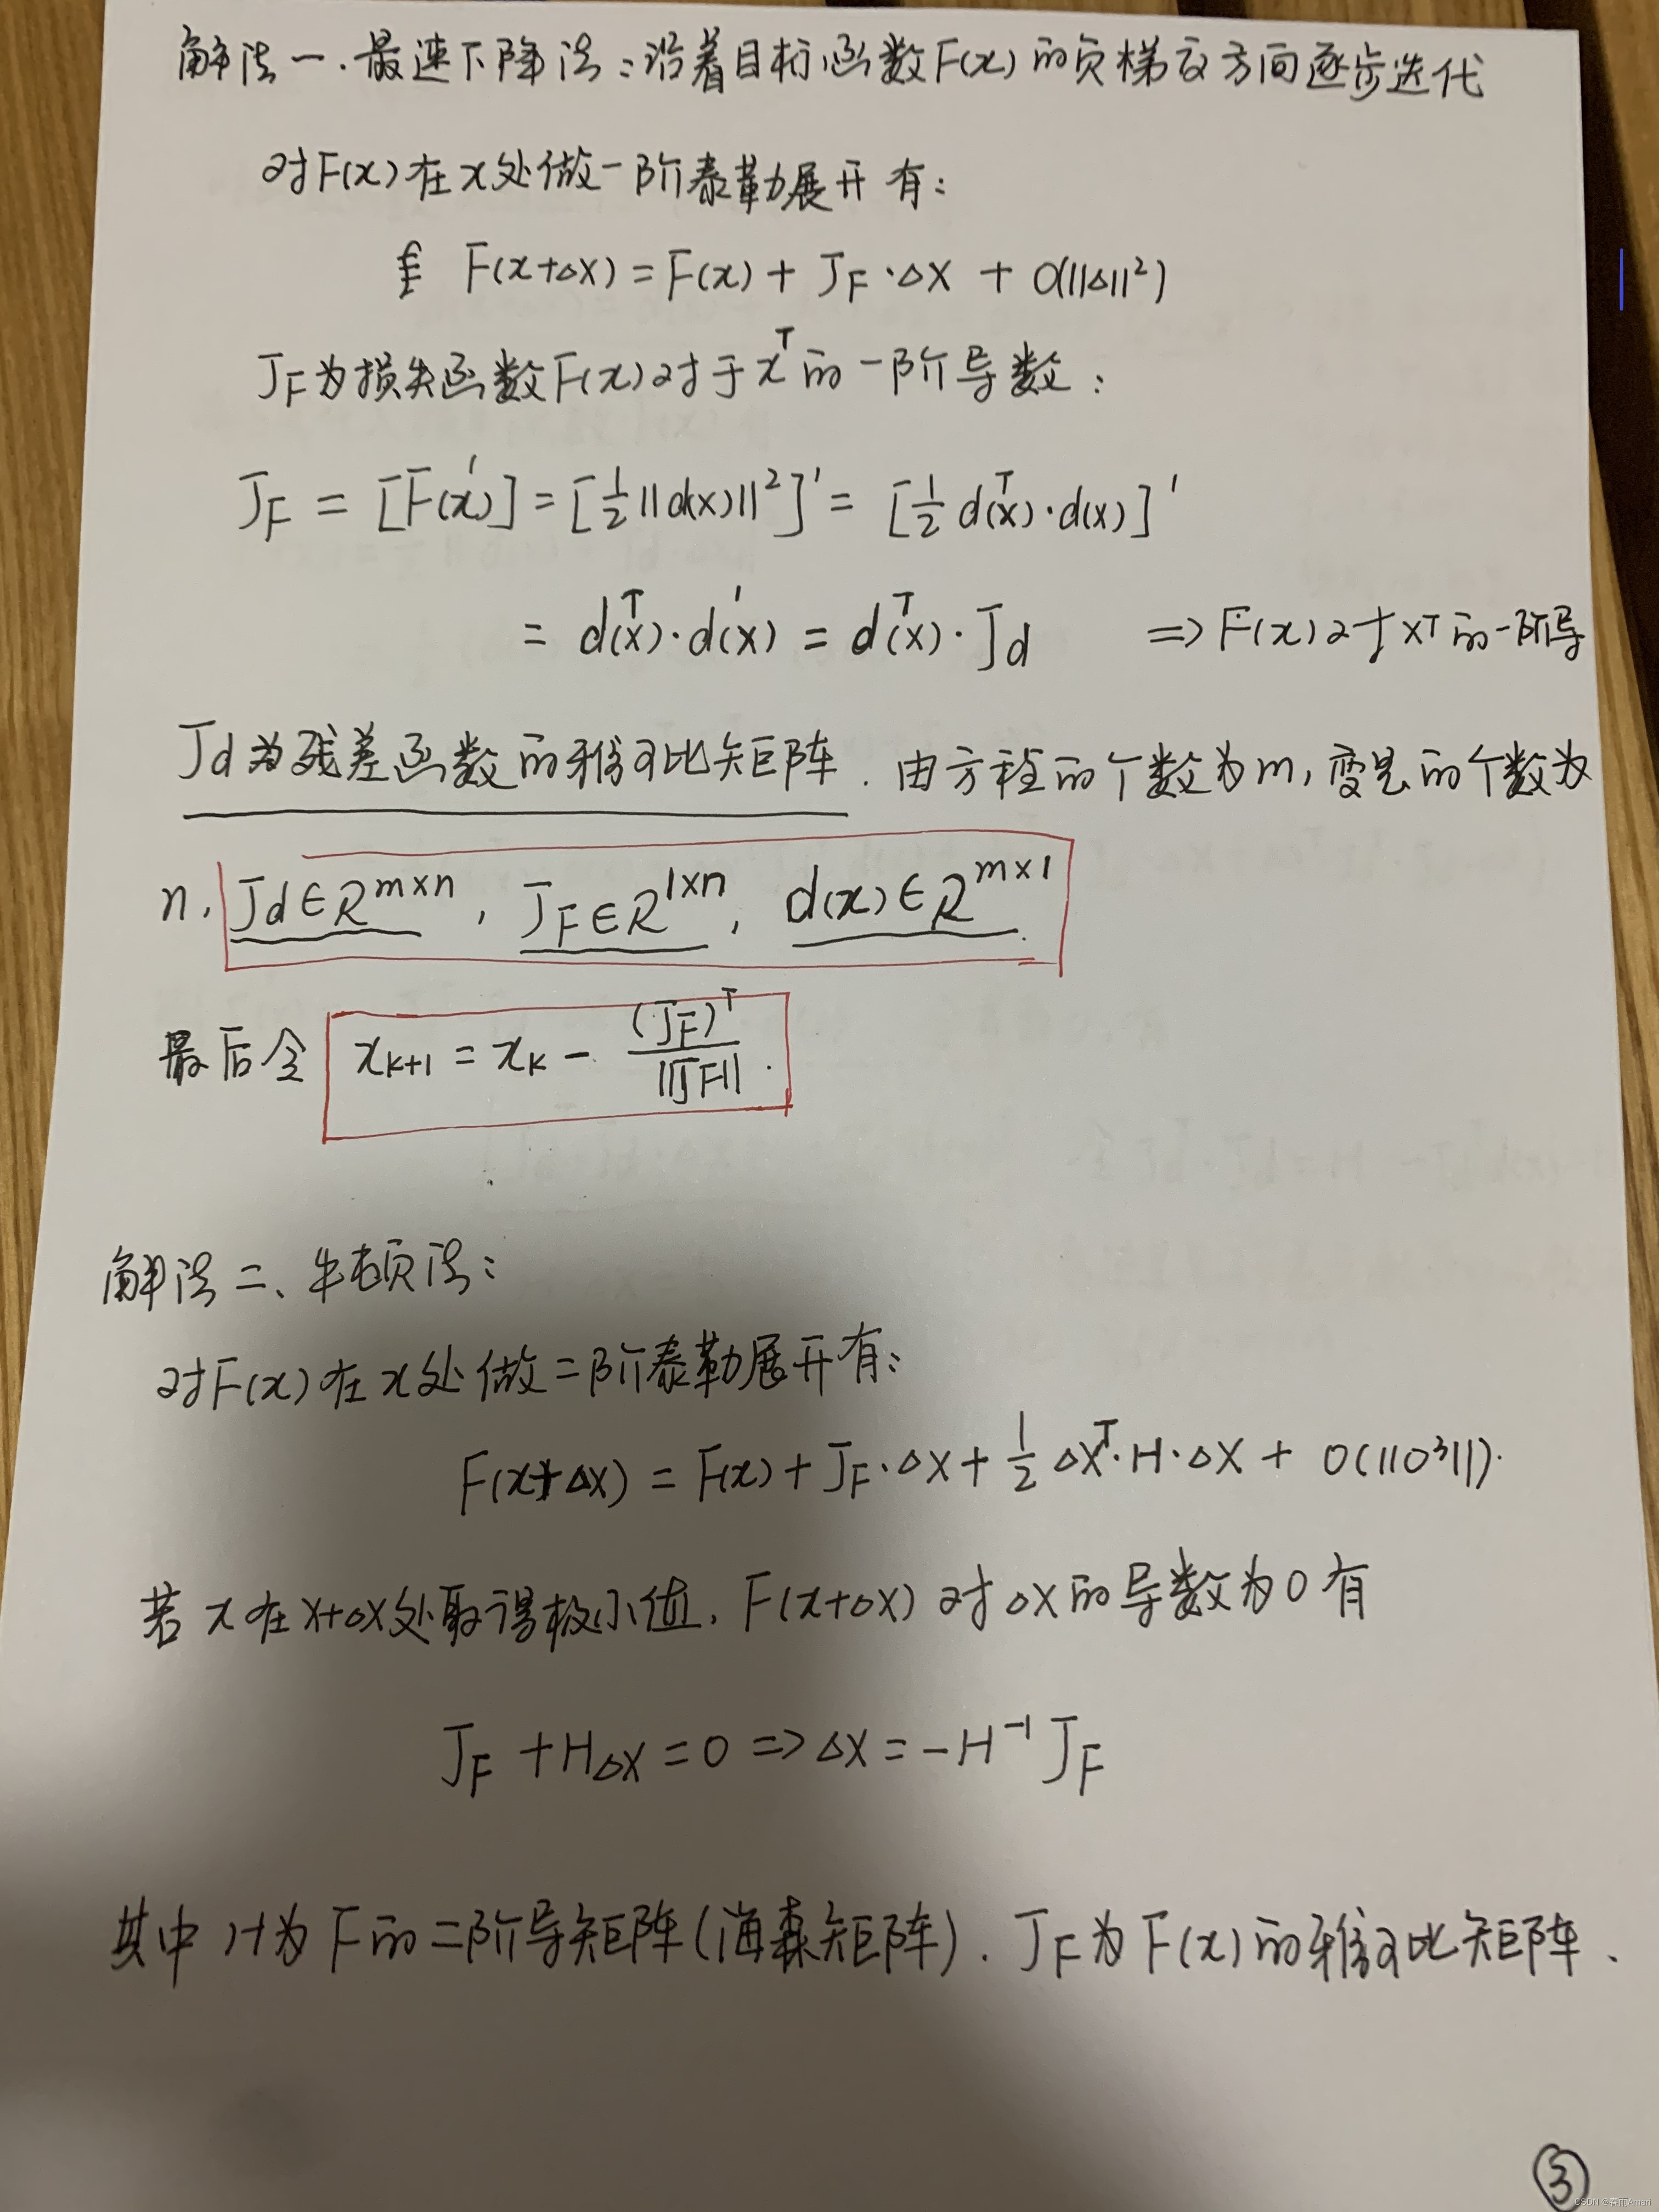 解法一.最速下降法:沿着目标函数F(x)的负梯度方向逐步迭代
对F(x)在x处做一阶泰勒展开有:
F(x+△X)=F(x)+J_F·△X+O(||△||²)
J_F为损失函数F(x)对于x^T的一阶导数:
J_F=[F(x)']=[½||d(x)||²]'=[½d(x)^T·d(x)]'
=d(x)^T·d(x)'=d(x)^T·J_d =>F(x)对于x^T的一阶导
Jd为残差函数的雅可比矩阵.由方程的个数为m,变量的个数为
n, Jd∈R^{m×n}, J_F∈R^{1×n}, d(x)∈R^{m×1}.
最后令 x_{k+1}=x_k-(J_F)^T/||J_F||.
解法二、牛顿法:
对F(x)在x处做二阶泰勒展开有:
F(x+△X)=F(x)+J_F·△X+½△X^T·H·△X+O(||△³||).
若x在x+△X处取得极小值,F(x+△X)对△X的导数为0有
J_F+H△X=0=>△X=-H^{-1}J_F
其中H为F的二阶导矩阵(海森矩阵).J_F为F(x)的雅可比矩阵、
③
CSDN @春雨Amari